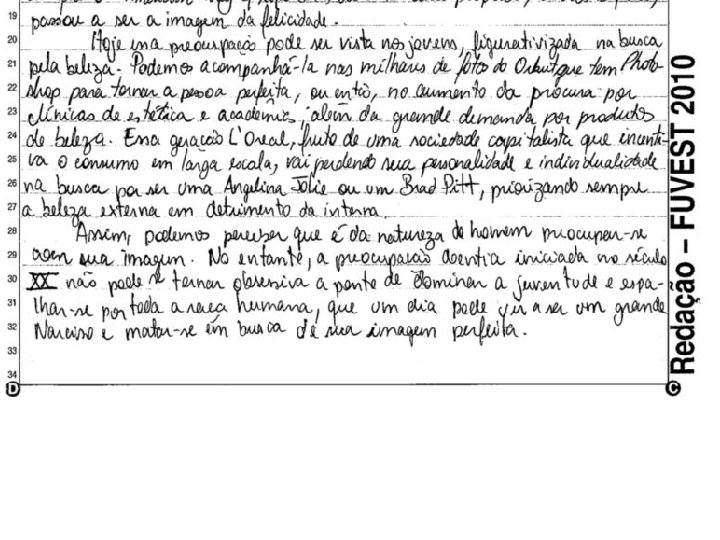 19 passou a ser a imagem da felicidade.
20 Hoje essa preocupação pode ser vista nos jovens, figurativizada na busca
21 pela beleza. Podemos acompanhá-la nas milhares de fotos do Orkut que tem Photo-
22 shop para tornar a pessoa perfeita, ou então, no aumento da procura por
23 clínicas de estética e academias, além da grande demanda por produtos
24 de beleza. Essa geração L'Oreal, fruto de uma sociedade capitalista que incenti-
25 va o consumo em larga escala, vai perdendo sua personalidade e individualidade
26 na busca por ser uma Angelina Jolie ou um Brad Pitt, priorizando sempre
27 a beleza externa em detrimento da interna.
28 Assim, podemos perceber que é da natureza do homem preocupar-se
29 com sua imagem. No entanto, a preocupação doentia iniciada no século
30 XX não pode se tornar obsessiva a ponto de dominar a juventude e espa-
31 lhar-se por toda a raça humana, que um dia pode vir a ser um grande
32 Narciso e matar-se em busca de sua imagem perfeita.
33
34
D C
Redação – FUVEST 2010